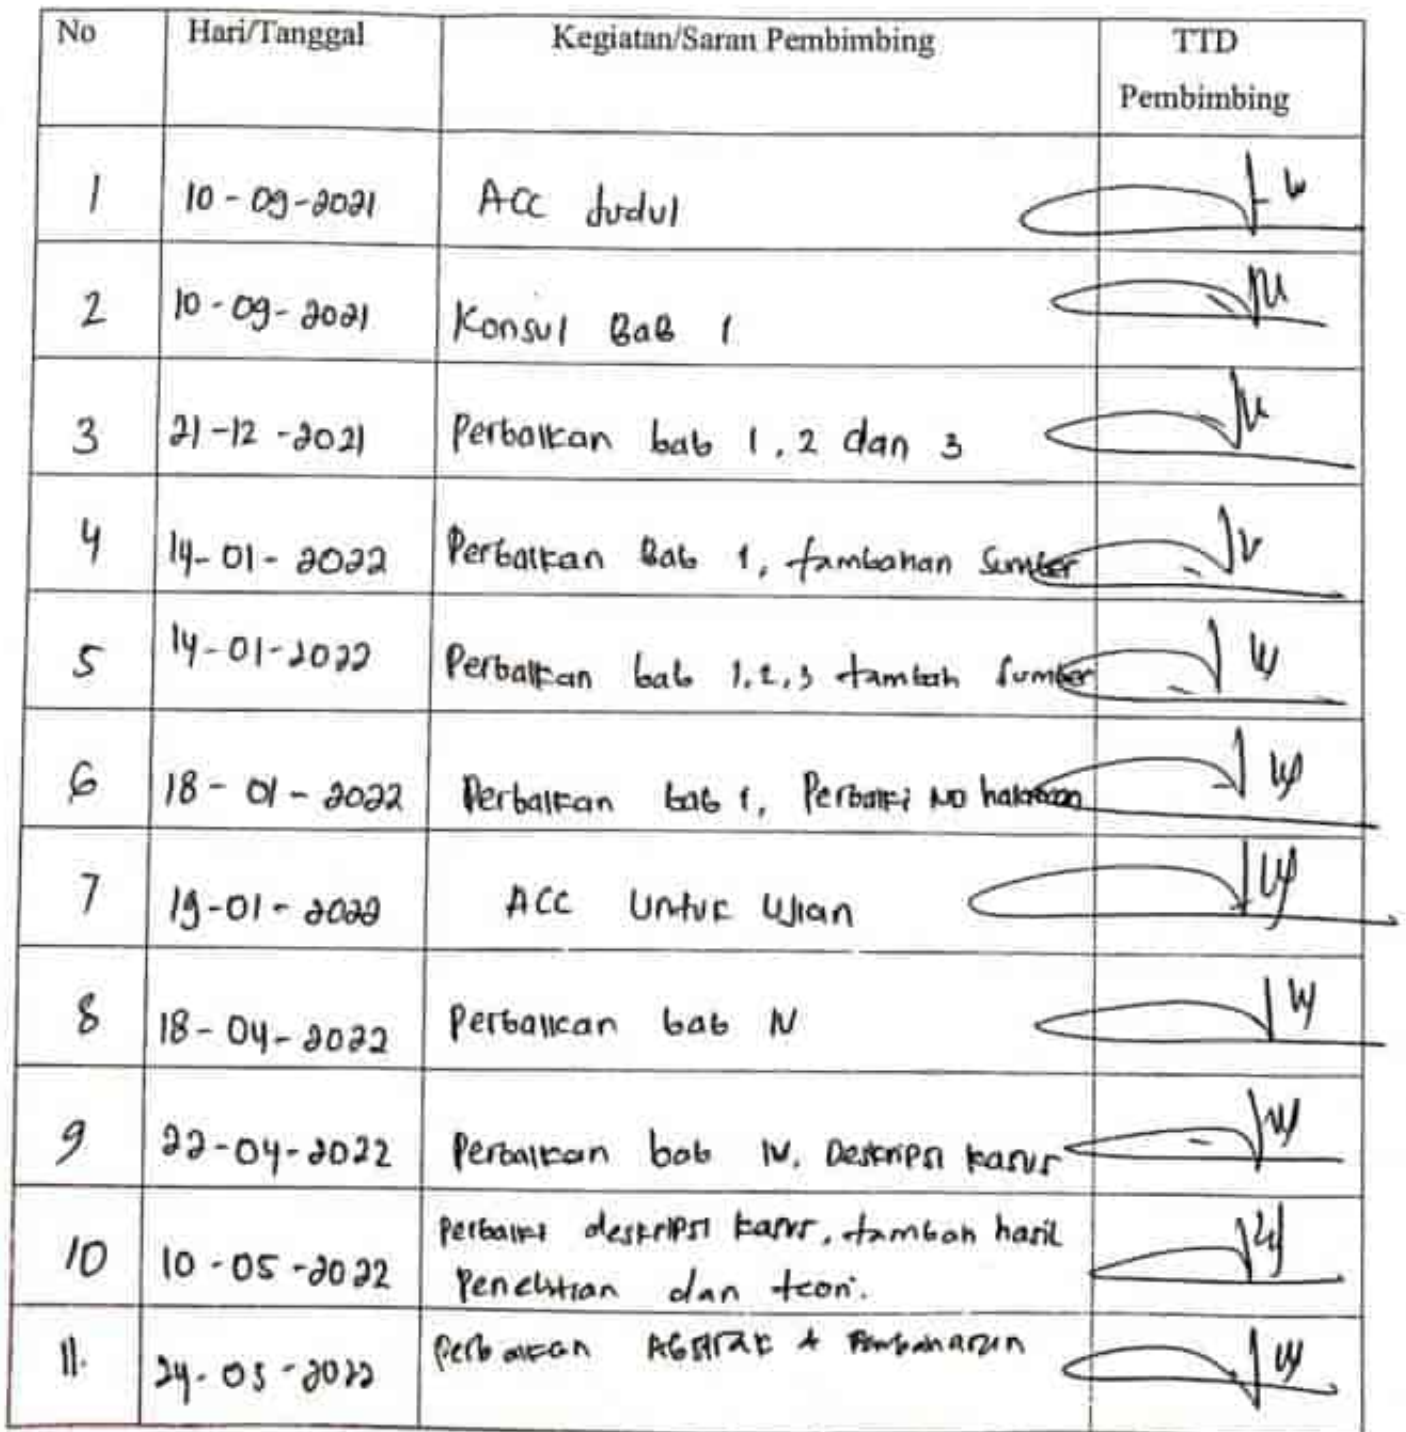 No Hari/Tanggal Kegiatan/Saran Pembimbing TTD
Pembimbing
1 10-09-2021 ACC Judul
2 10-09-2021 Konsul BaB 1
3 21-12-2021 Perbaikan bab 1, 2 dan 3
4 14-01-2022 Perbaikan Bab 1, tambahan Sumber
5 14-01-2022 Perbaikan bab 1,2,3 tambah Sumber
6 18-01-2022 Perbaikan bab 1, Perbaiki No halaman
7 19-01-2022 ACC Untuk Ujian
8 18-04-2022 Perbaikan bab IV
9 22-04-2022 Perbaikan bab IV, Deskripsi kasus
10 10-05-2022 Perbaiki deskripsi kasus, tambah hasil
Penelitian dan teori.
11. 24-05-2022 Perbaikan Abstrak +